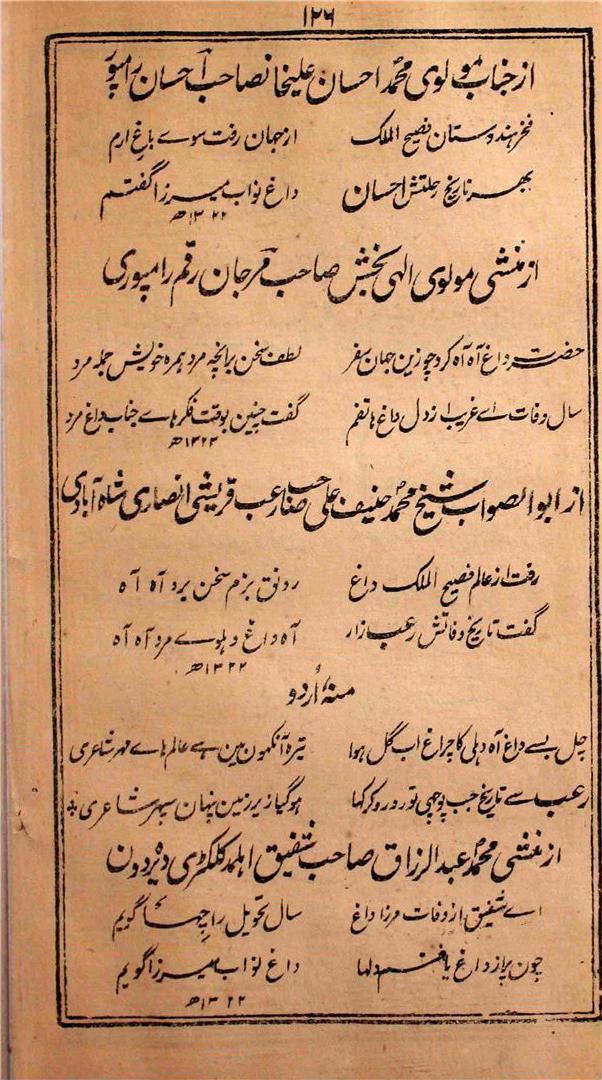 ۱۲۶
از جناب مولوی محمد احسان علیخانصاحب احسان رامپور
فخر ہندوستان فصیح الملک از جہان رفت سوے باغ ارم
بہر تاریخ رحلتش احسان داغ نواب میرزا گفتم
۱۳۲۲ھ
از منشی مولوی الہی بخش صاحب مرجان رقم رامپوری
حضرت داغ آہ آہ کرد چو زین جہان سفر لطف سخن برانچہ مرد ہمرہ خویش جملہ مرد
سال وفات اے غریب از دل داغ ہاتفم گفت چنین بوقت فکر ہاے جناب داغ مرد
۱۳۲۲ھ
از ابو الصواب شیخ محمد حنیف علی صاحب رعب قریشی انصاری شاہ آبادی
رفت از عالم فصیح الملک داغ رونق بزم سخن برد آہ آہ
گفت تاریخ وفاتش رعب زار آہ داغ دہلوے مرد آہ آہ
۱۳۲۲ھ
منہ اردو
چل بسے داغ آہ دہلی کا چراغ اب گل ہوا تیرہ آنکھون مین ہے عالم ہاے مہر شاعری
رعب سے تاریخ جب پوچھی تو رو رو کر کہا ہو گیا زیر زمین پنہان سپہر شاعری
از منشی محمد عبد الرزاق صاحب شفیق اہلمد کلکٹری دیرہ دون
اے شفیق از وفات مرزا داغ سال تحویل را چہا گویم
چون پر از داغ یافتم دلہا داغ نواب میرزا گویم
۱۳۲۲ھ